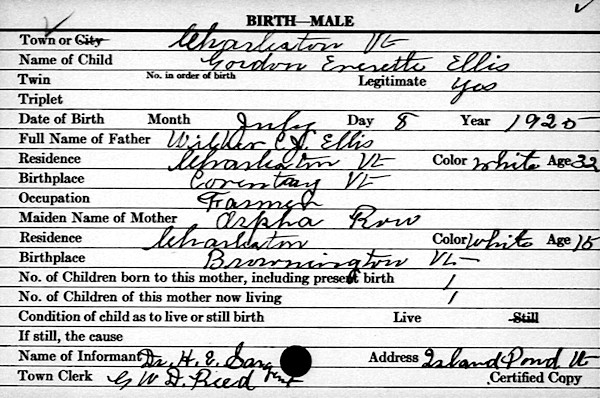 BIRTH—MALE
Town or City Charleston Vt
Name of Child Gordon Everette Ellis
Twin No. in order of birth Legitimate Yes
Triplet
Date of Birth Month July Day 8 Year 1925
Full Name of Father Wilder C. Ellis
Residence Charleston Vt Color white Age 32
Birthplace Coventry Vt
Occupation Farmer
Maiden Name of Mother Orpha Row
Residence Charleston Color white Age 15
Birthplace Brownington Vt
No. of Children born to this mother, including present birth 1
No. of Children of this mother now living 1
Condition of child as to live or still birth Live Still
If still, the cause
Name of Informant Dr. H. E. Sargent Address Island Pond Vt
Town Clerk G W D. Reed Certified Copy